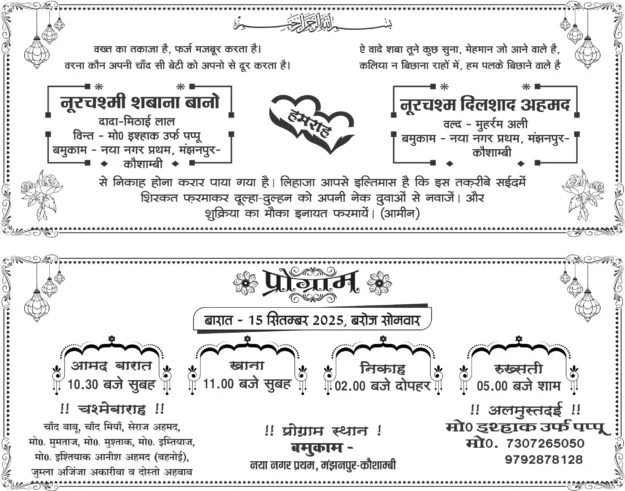 بسم الله الرحمن الرحيم
वख्त का तकाजा है, फर्ज मजबूर करता है।
वरना कौन अपनी चाँद सी बेटी को अपनो से दूर करता है।
ऐ वादे शबा तूने कुछ सुना, मेहमान जो आने वाले है,
कलिया न बिछाना राहों में, हम पलके बिछाने वाले है
नूरचश्मी शबाना बानो
दादा-मिठाई लाल
विन्त - मो0 इश्हाक उर्फ पप्पू
बमुकाम - नया नगर प्रथम, मंझनपुर-
कौशाम्बी
हमराह
नूरचश्म दिलशाद अहमद
वल्द - मुहर्रम अली
बमुकाम - नया नगर प्रथम, मंझनपुर-
कौशाम्बी
से निकाह होना करार पाया गया है। लिहाजा आपसे इल्तिमास है कि इस तक़रीबे सईदमें
शिरकत फ़रमाकर दूल्हा-दुल्हन को अपनी नेक दुवाओं से नवाजें। और
शुक्रिया का मौका इनायत फरमायें। (आमीन)
प्रोग्राम
बारात - 15 सितम्बर 2025, बरोज सोमवार
आमद बारात
10.30 बजे सुबह
खाना
11.00 बजे सुबह
निकाह
02.00 बजे दोपहर
रुख्सती
05.00 बजे शाम
!! चश्मेबाराह !!
चाँद बाबू, चाँद मियाँ, सेराज अहमद,
मो0 मुमताज, मो0 मुश्ताक, मो0 इम्तियाज,
मो0 इश्तियाक आनीश अहमद (बहनोई),
जुम्ला अजिंजा अकारीबा व दोस्तो अहबाब
!! प्रोग्राम स्थान !
बमुकाम -
नया नगर प्रथम, मंझनपुर-कौशाम्बी
!! अलमुस्तदई !!
मो0 इश्हाक उर्फ पप्पू
मो0. 7307265050
9792878128